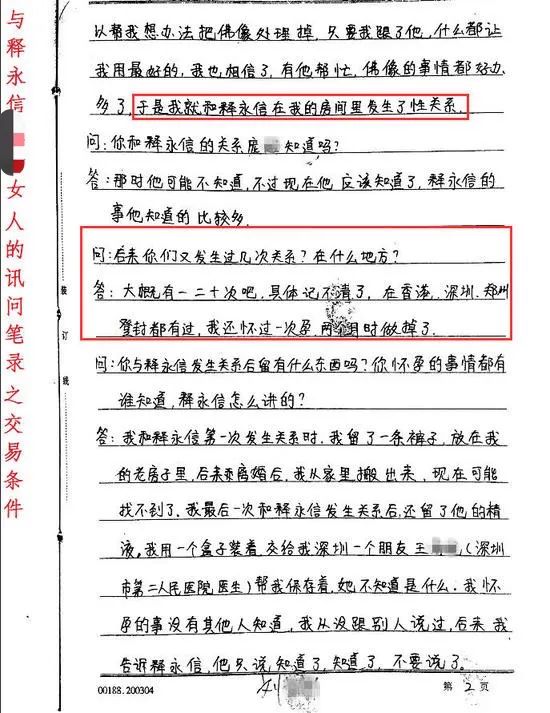 与释永信
女人的讯问笔录之交易条件
装
订
线
以帮我想办法把佛像处理掉，只要我跟了他，什么都让
我用最好的，我也相信了，有他帮忙，佛像的事情都好办
多了，于是我就和释永信在我的房间里发生了性关系。
问：你和释永信的关系庞知道吗？
答：那时他可能不知道，不过现在他应该知道了，释永信的
事他知道的比较多。
问：后来你们又发生过几次关系？在什么地方？
答：大概有一二十次吧，具体记不清了，在香港、深圳、郑州
登封都有过，我还怀过一次孕，两个月时做掉了。
问：你与释永信发生关系后留有什么东西吗？你怀孕的事情都有
谁知道，释永信怎么讲的？
答：我和释永信第一次发生关系时，我留了一条裤子，放在我
的老房子里，后来离婚后，我从家里搬出来，现在可能
找不到了，我最后一次和释永信发生关系后，还留了他的精
液，我用一个盒子装着，交给我深圳一个朋友王（深圳
市第二人民医院医生）帮我保存着，她不知道是什么。我怀
孕的事没有其他人知道，我从没跟别人说过，后来我
告诉释永信，他只说知道了，知道了，不要说了。
00188.200304
刘
第2页